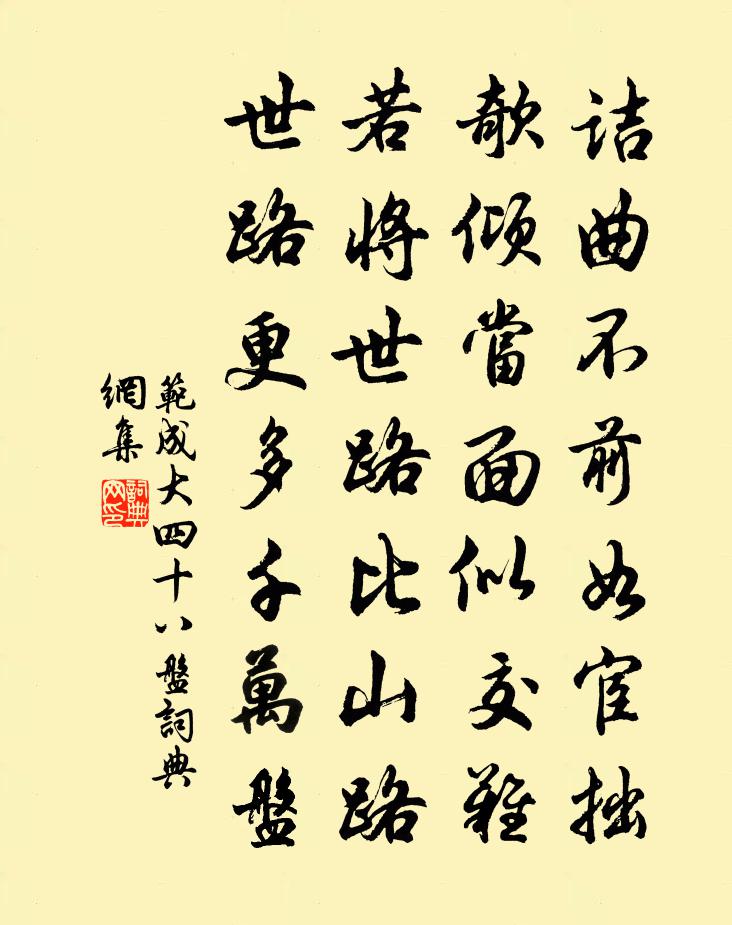 詰曲不前如宦拙
欹傾當面似交難
若將世路比山路
世路更多千萬盤
範成大四十八盤詞典
網集
詞典網印